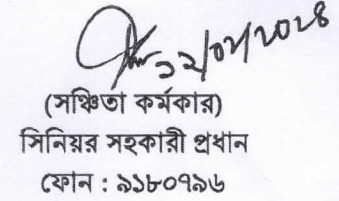 ১২/০২/২০২৪
(সঞ্চিতা কর্মকার)
সিনিয়র সহকারী প্রধান
ফোন : ৯১৮০৭৯৬